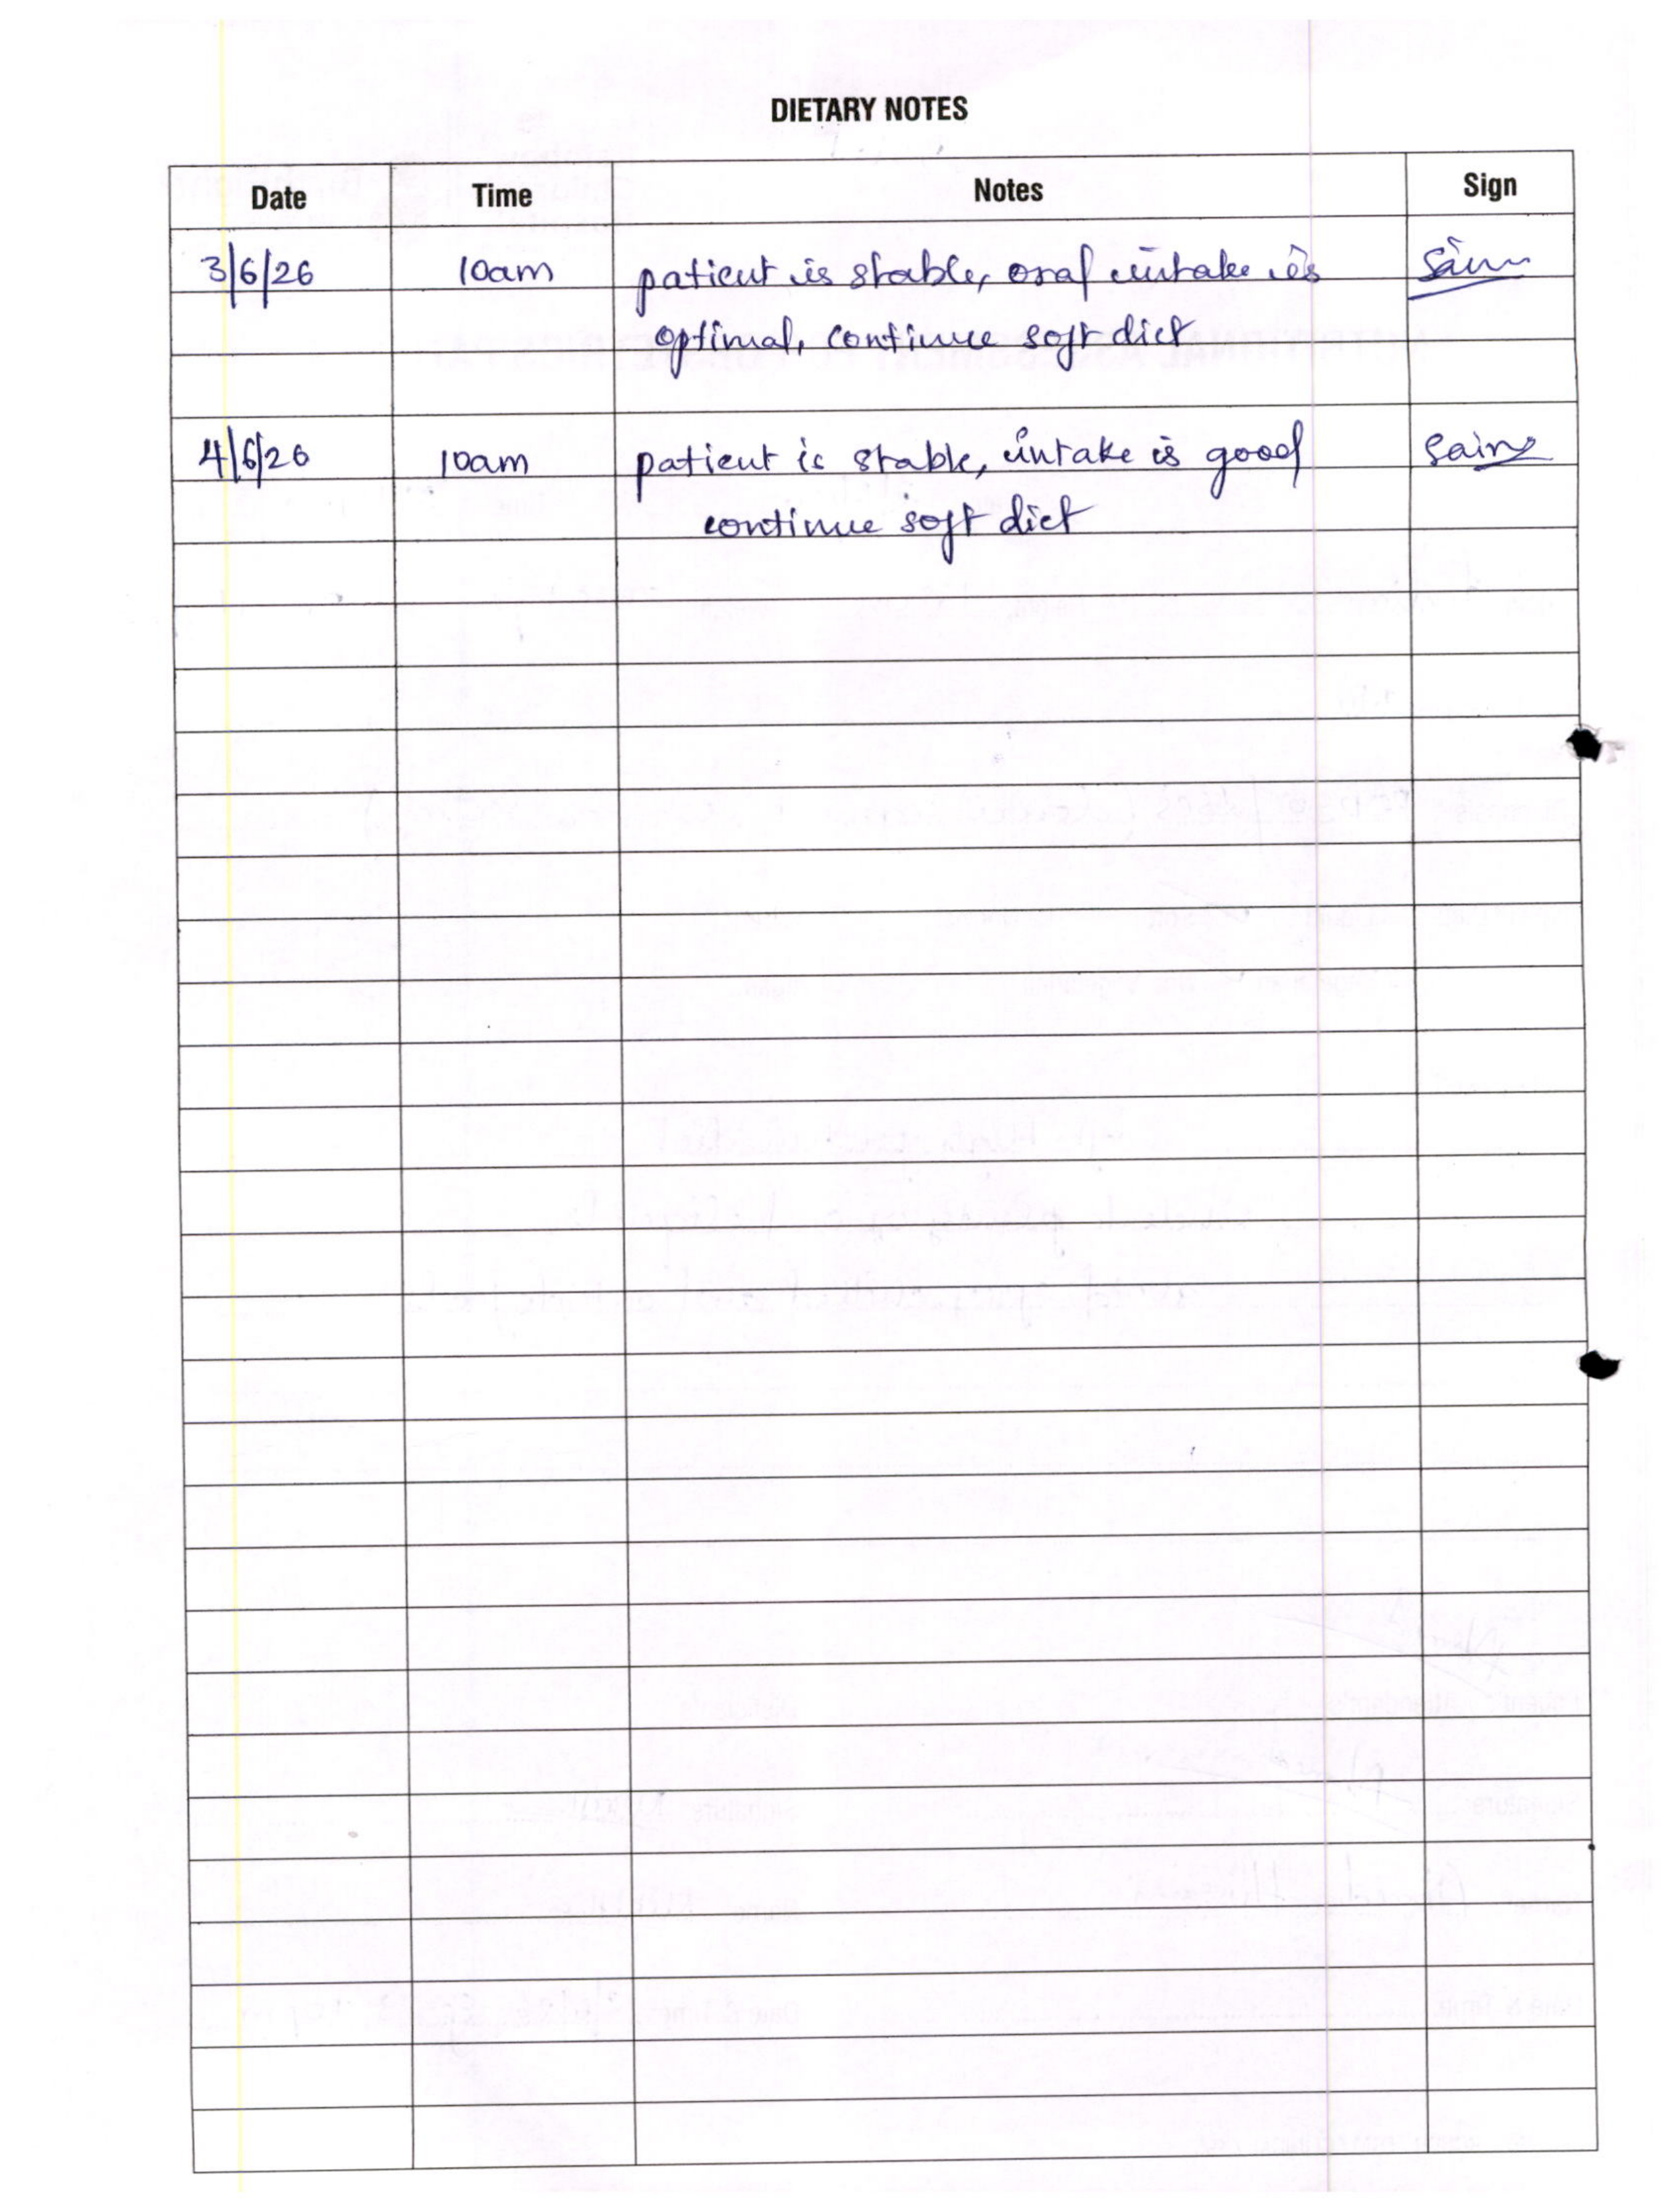 DIETARY NOTES
Date Time Notes Sign
3/6/26 10am patient is stable, oral intake is
optimal, continue soft diet
4/6/26 10am patient is stable, intake is good
continue soft diet